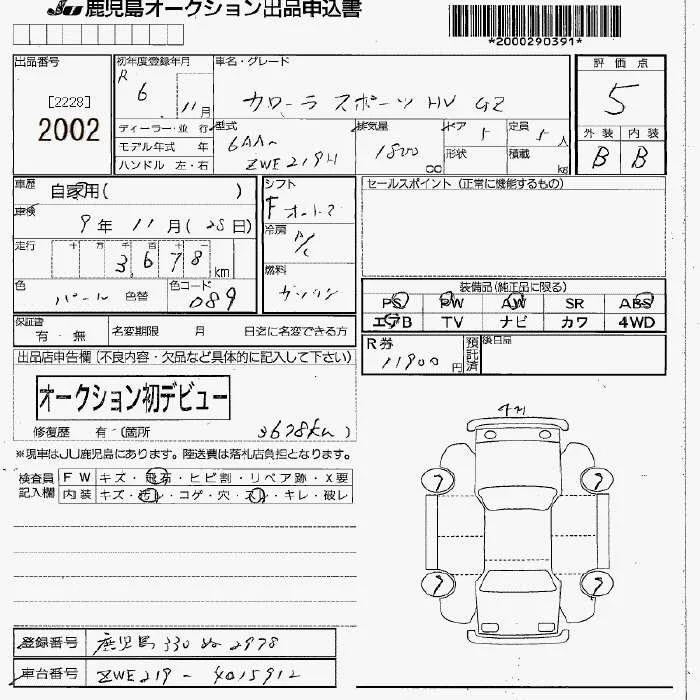 JU 鹿児島オークション出品申込書
*2000290391*
出品番号 [2228] 2002
初年度登録年月 R 6 11月
車名・グレード カローラ スポーツ HV GZ
評価点 5
外装 内装
B B
ディーラー・並 行
モデル年式 年
ハンドル 左・右
型式 6AA- ZWE219H
排気量 1800 cc
ドア 5
形状
定員 5人
積載 kg
車歴 自家用( )
車検 9年 11月(28日)
走行 十 万 千 百 十 3678km
色 パール 色替 色コード 089
シフト F オートマ
冷房 A/C
燃料 ガソリン
セールスポイント (正常に機能するもの)
装備品(純正品に限る)
PS PW AW SR ABS
エアB TV ナビ カワ 4WD
保証書 有・無
名変期限 月 日迄に名変できる方
R券 11900円
預託済
後日品
出品店申告欄(不良内容・欠品など具体的に記入して下さい)
オークション初デビュー
修復歴 有・(箇所 3678km)
※現車はJU鹿児島にあります。陸送費は落札店負担となります。
検査員記入欄
FW キズ・飛石・ヒビ割・リペア跡・X要
内装 キズ・汚レ・コゲ・穴・スレ・キレ・破レ
7 7
7 7
登録番号 鹿児島 330 ぬ 2978
車台番号 ZWE219-4015912